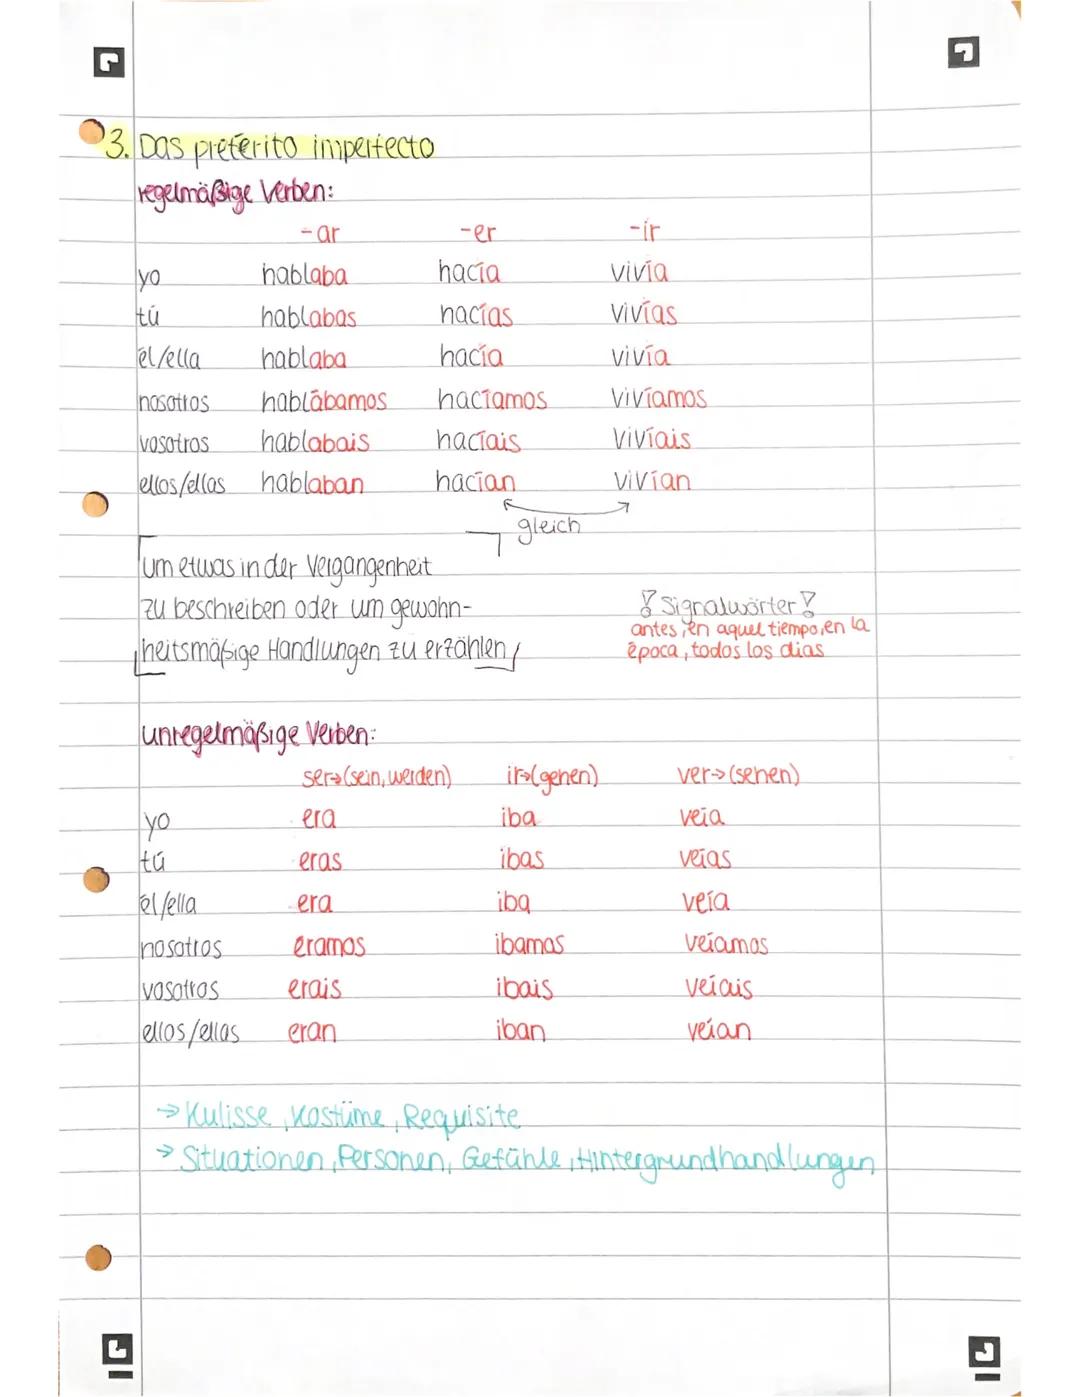 3. Das préterito imperfecto
regelmäßige Verben:
-ar -er -ir
yo hablaba hacía vivía
tú hablabas hacías vivías
él/ella hablaba hacía vivía
nosotros hablábamos hacíamos vivíamos
vosotros hablabais hacíais vivíais
ellos/ellas hablaban hacían vivían
gleich
um etwas in der Vergangenheit
zu beschreiben oder um gewohn-
heitsmäßige Handlungen zu erzählen
! Signalwörter !
antes, en aquel tiempo, en la
época, todos los dias
unregelmäßige Verben:
ser→(sein, werden) ir→(gehen) ver→(sehen)
yo era iba veía
tú eras ibas veías
él/ella era iba veía
nosotros éramos ibamos veíamos
vosotros erais ibais veíais
ellos/ellas eran iban veían
→ Kulisse, Kostüme, Requisite
→ Situationen, Personen, Gefühle, Hintergrundhandlungen